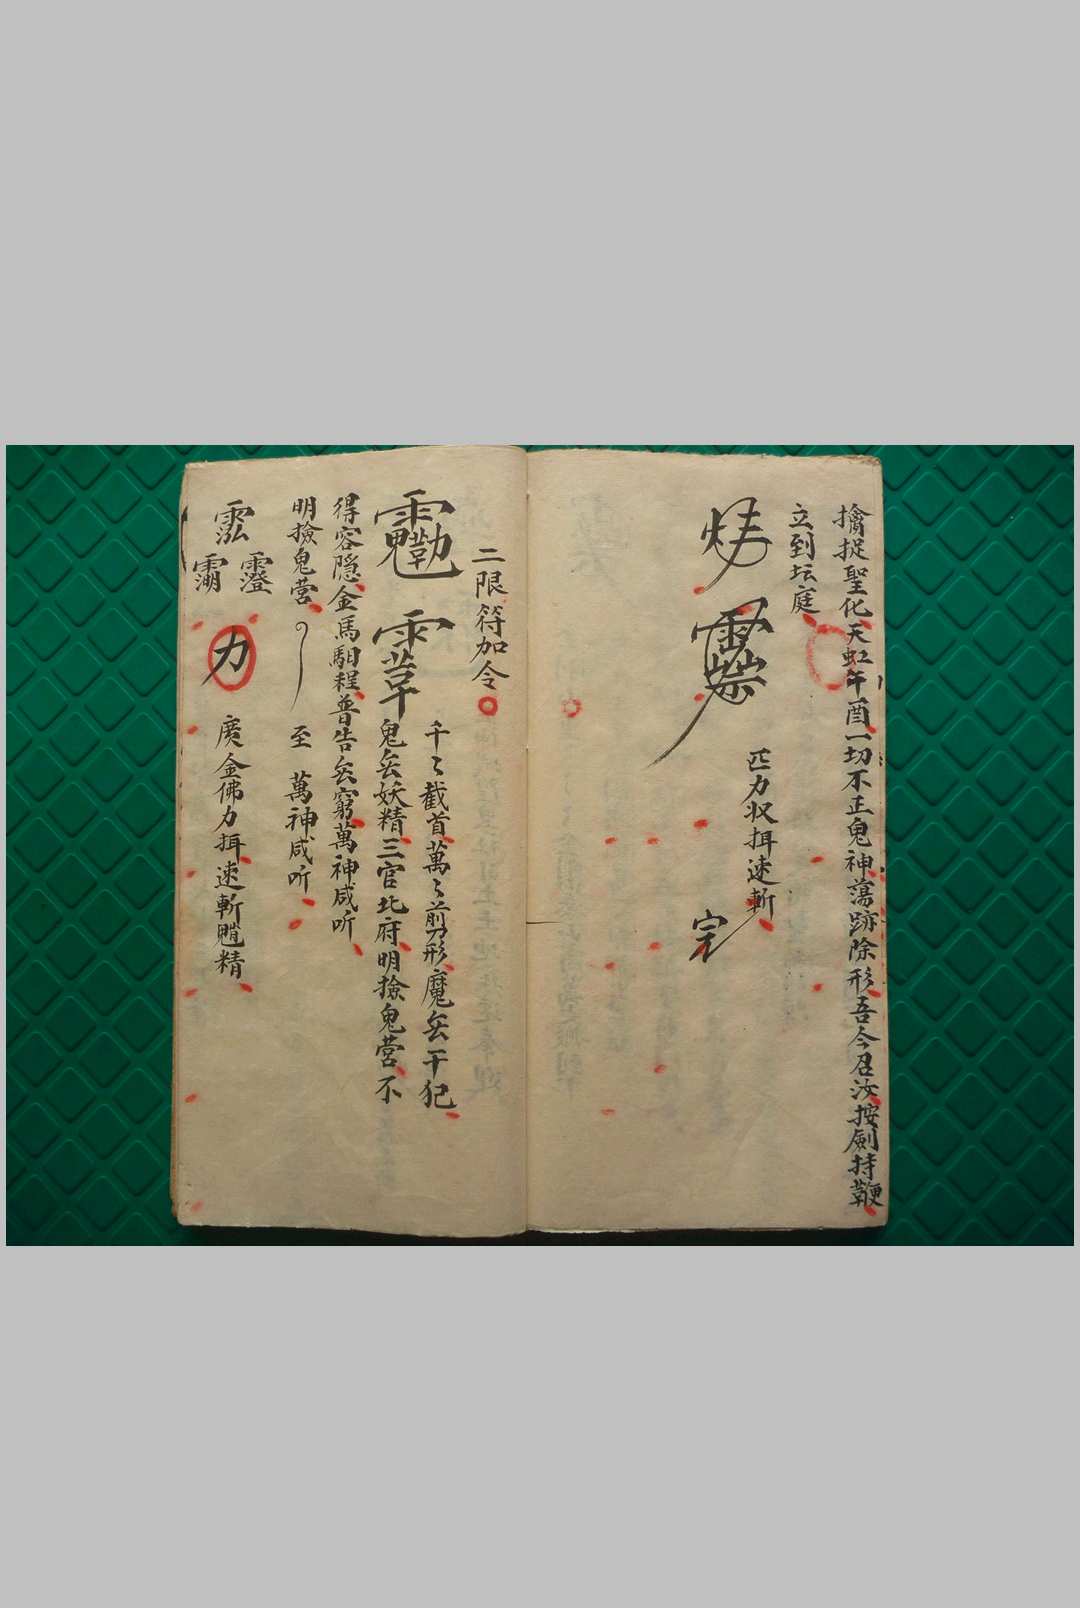 擒捉聖化天虹午酉一切不正鬼神蕩跡除形吾今召汝按劍持鞭
立到坛庭
匹力収揖速斬
完
二限符加令
千〻截首萬〻剪形魔兵干犯
鬼兵妖精三官北府明撿鬼营不
得容隐金馬馹程普告兵窮萬神咸听
明撿鬼营
至 萬神咸听
力
廣金佛力揖速斬魈精